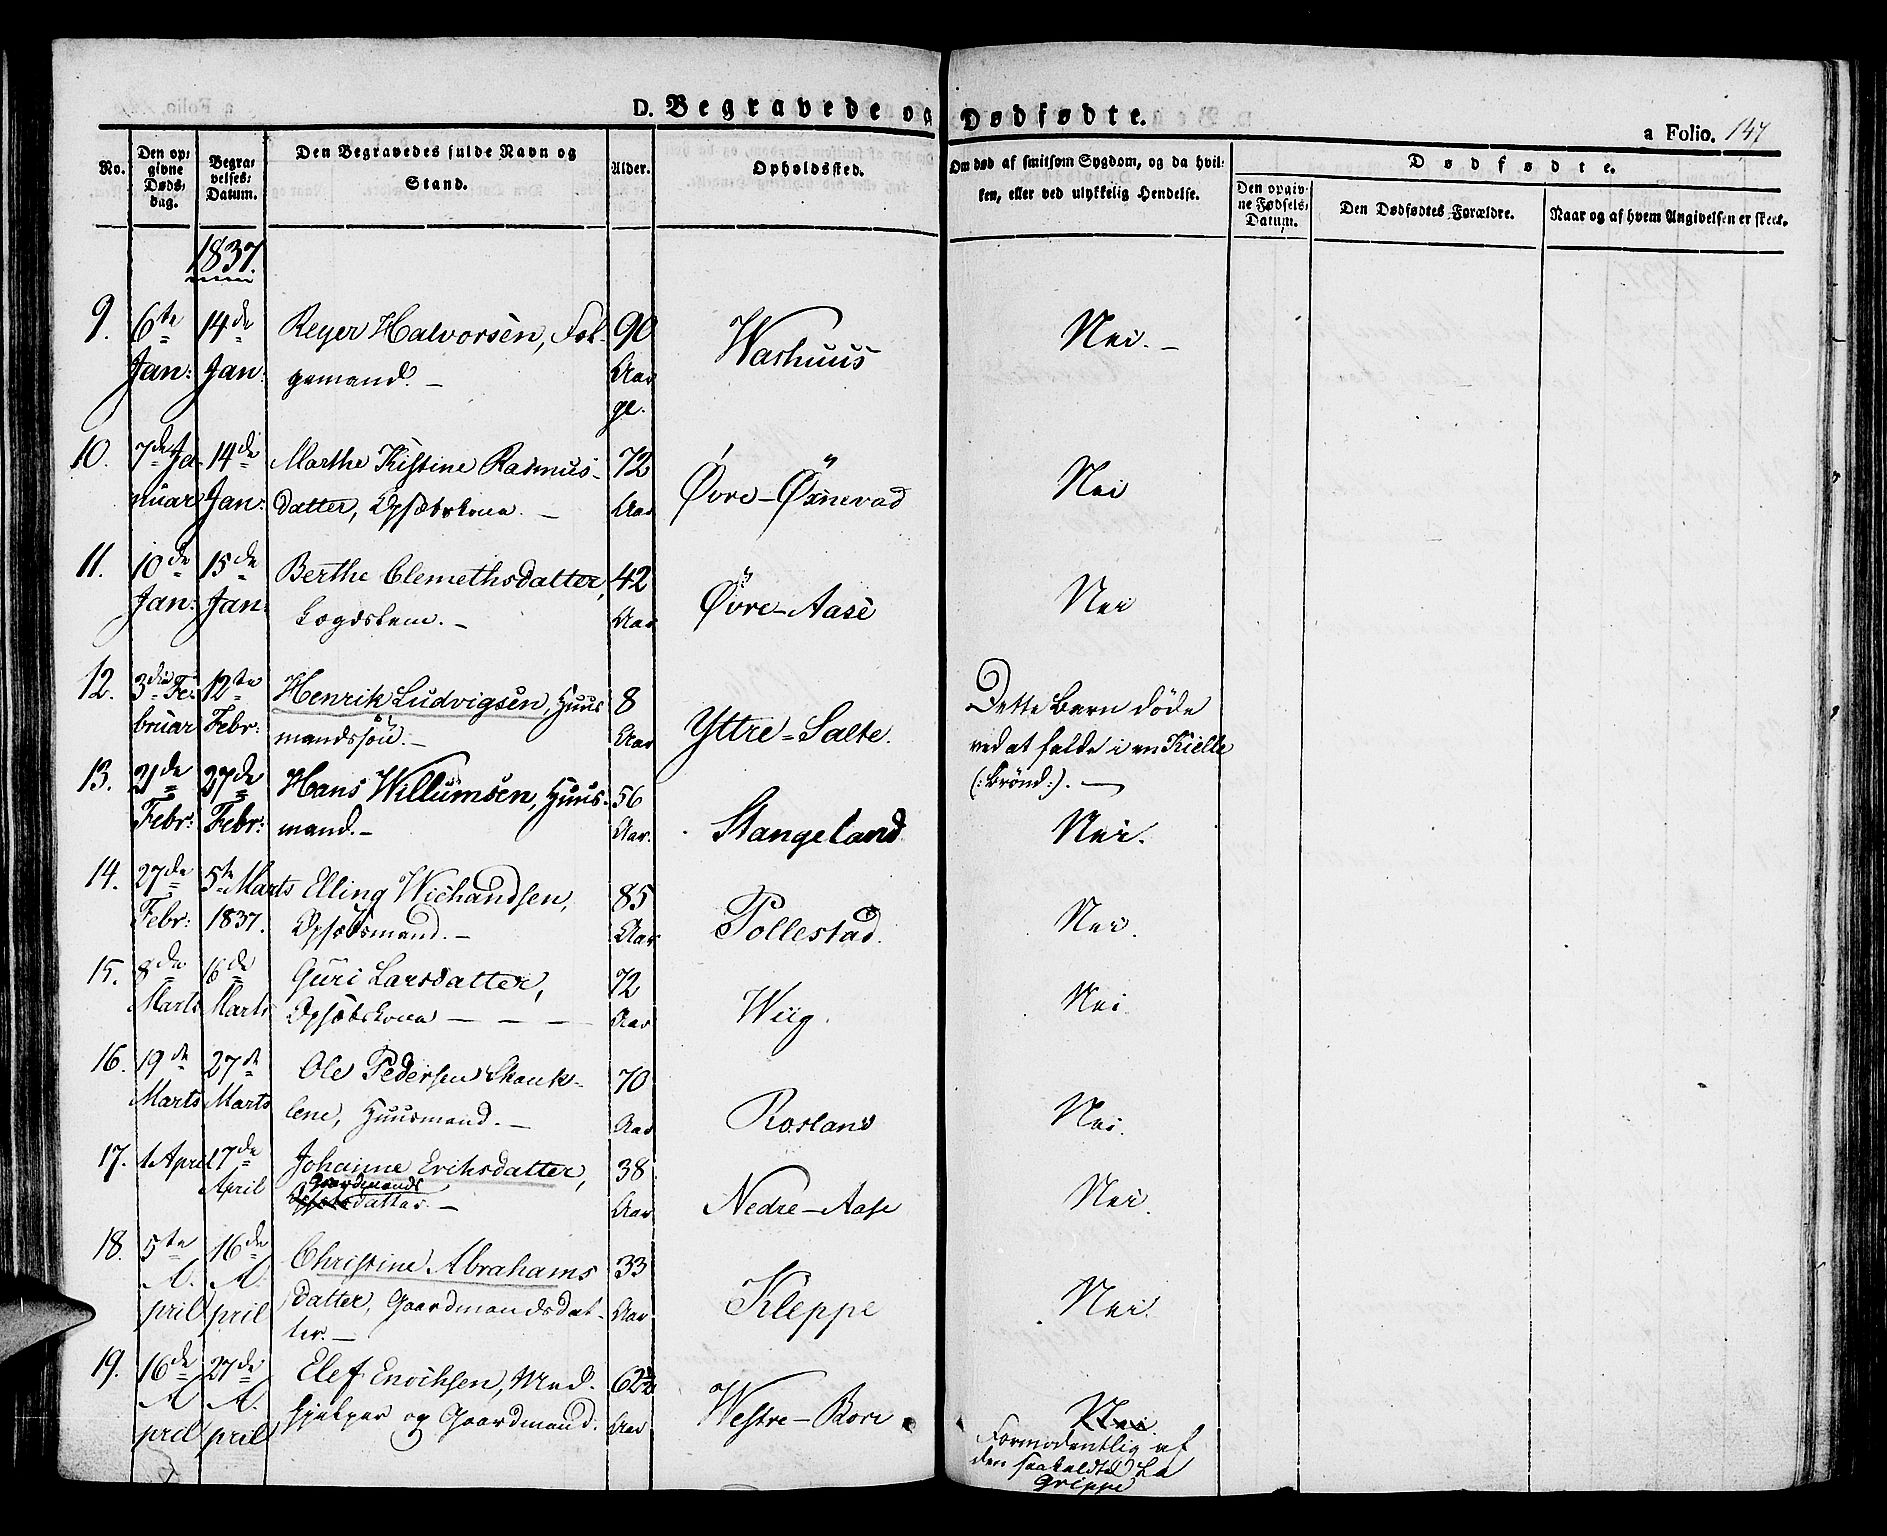 D. Begravede og Dødfødte.
a Folio. 147
No.
Den opgivne Døds-dag.
Begravelses-Datum.
Den Begravedes fulde Navn og Stand.
Alder.
Opholdssted.
Om død af smitsom Sygdom, og da hvilken, eller ved ulykkelig Hendelse.
Dødfødte.
Den opgivne Fødsels-Datum.
Den Dødfødtes Forældre.
Naar og af hvem Angivelsen er skeet.
1837.
9. 6te 14de Reyer Halvorsen, Fol- 90 Warhuus Nei. –
Jan: Jan: gemand. – Aar
gl.
10. 7de Ja- 14de Marthe Kistine Rasmus- 72 Øvre-Öxnevad Nei
nuar Jan: datter, Opsæbskone. – Aar
11. 10de 15de Berthe Clemethsdatter, 42 Øvre-Aase Nei
Jan: Jan: Lægdslem. – Aar
12. 3die Fe- 12te Henrik Ludvigsen, Huus- 8 Yttre-Salte. Dette Barn døde
bruar Febr: mandssøn. – Aar ved at falde i en Kielle
(: Brønd:). –
13. 21de 27de Hans Willumsen, Huus- 56 Stangeland Nei.
Febr: Febr: mand. – Aar.
14. 27de 5te Marts Elling Wichandsen, 85 Pollestad. Nei.
Febr: 1837. Opsæbsmand. – Aar
15. 8de 16de Guri Larsdatter, 72 Wiig. Nei.
Marts Marts Opsæbskone – – – Aar
16. 19de 27de Ole Pedersen Skank- 70 Rosland Nei.
Marts Marts lene, Huusmand. – Aar
17. 1 April 17de Johanne Eriksdatter, 38 Nedre-Aase Nei.
April Gaardmands
datter. – Aar
18. 5te 16de Christine Abrahams 33 Kleppe Nei.
A- A- datter, Gaardmandsdat- Aar
pril pril ter. –
19. 16de 27de Elef Enochsen, Med- 62½ Westre-Bore Nei.
A- A- hjelper og Gaardmand. Aar Formodentlig af
pril pril den saakaldte La
Grippe